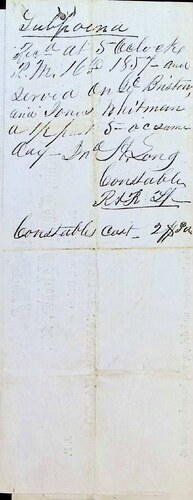 Subpoena
Rec'd at 5 Oclock
P. M. 16th 1857 and
served on
and Jones Whitman
a 1/2 past 5 oc same
day — Jno H Long
Constable
Constables Cost